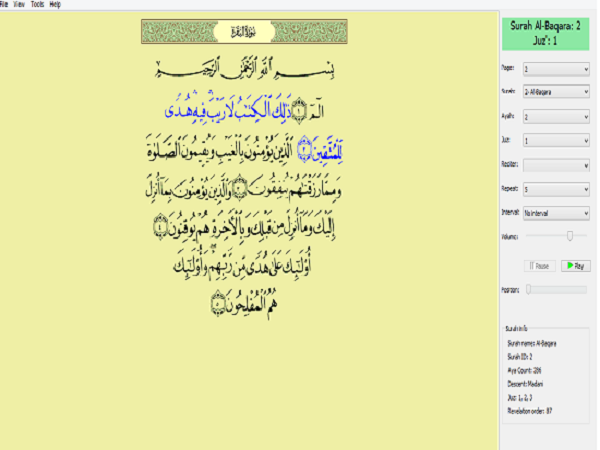 File View Tools Help
سورة البقرة
بسم الله الرحمن الرحيم
الٓمٓ ١ ذَٰلِكَ ٱلْكِتَٰبُ لَا رَيْبَ فِيهِ هُدًى
لِّلْمُتَّقِينَ ٢ ٱلَّذِينَ يُؤْمِنُونَ بِٱلْغَيْبِ وَيُقِيمُونَ ٱلصَّلَوٰةَ
وَمِمَّا رَزَقْنَٰهُمْ يُنفِقُونَ ٣ وَٱلَّذِينَ يُؤْمِنُونَ بِمَآ أُنزِلَ
إِلَيْكَ وَمَآ أُنزِلَ مِن قَبْلِكَ وَبِٱلْءَاخِرَةِ هُمْ يُوقِنُونَ ٤
أُو۟لَٰٓئِكَ عَلَىٰ هُدًى مِّن رَّبِّهِمْ وَأُو۟لَٰٓئِكَ
هُمُ ٱلْمُفْلِحُونَ ٥
Surah Al-Baqara: 2
Juz': 1
Page: 2
Surah: 2- Al-Baqara
Ayah: 2
Juz: 1
Reciter:
Repeat: 5
Interval: No interval
Volume:
Pause Play
Position:
Surah info
Surah name: Al-Baqara
Surah ID: 2
Aya Count: 286
Descent: Madani
Juz: 1, 2, 3
Revelation order: 87